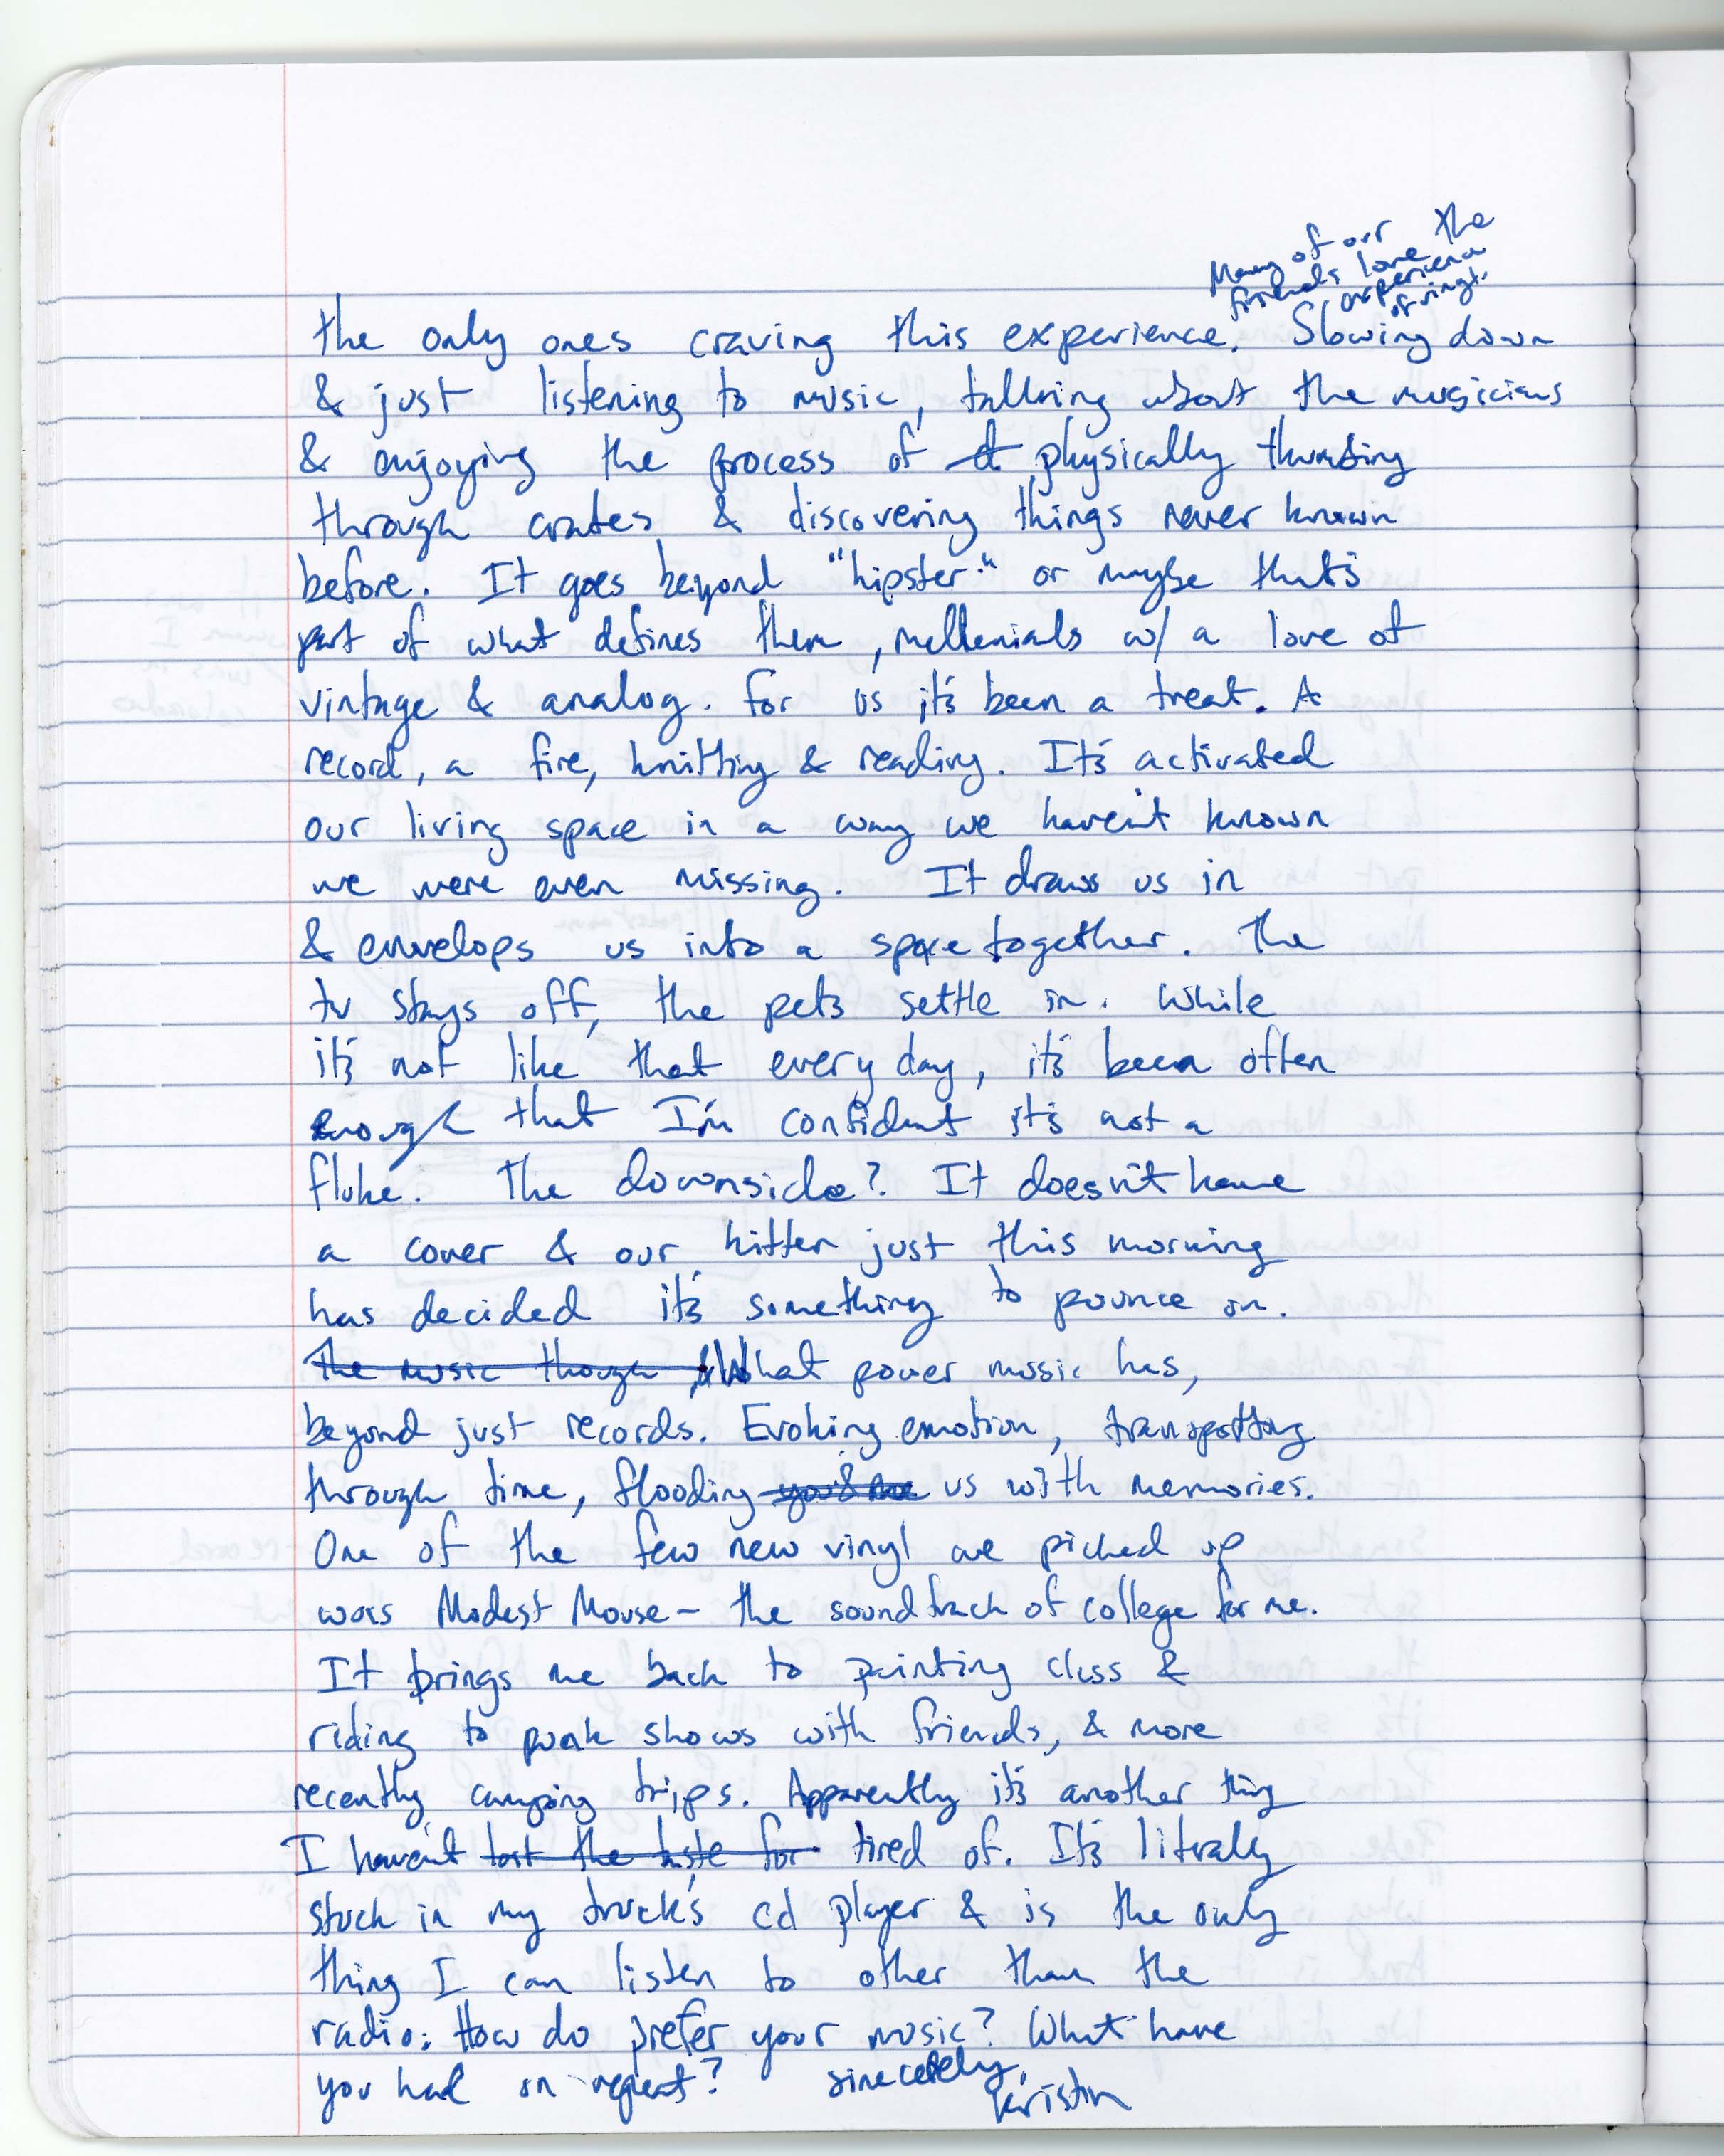 Many of our the
friends love
experience
of vinyl.
the only ones craving this experience. Slowing down
& just listening to music, talking about the musicians
& enjoying the process of physically thumbing
through crates & discovering things never known
before. It goes beyond "hipster" or maybe that's
part of what defines them, mellenials w/ a love of
vintage & analog. For us it's been a treat. A
record, a fire, knitting & reading. It's activated
our living space in a way we haven't known
we were even missing. It draws us in
& envelops us into a space together. The
tv stays off, the pets settle in. While
it's not like that every day, it's been often
enough that I'm confident it's not a
fluke. The downside? It doesn't have
a cover & our kitten just this morning
has decided it's something to pounce on.
The music though, What power music has,
beyond just records. Evoking emotion, transporting
through time, flooding you & me us with memories.
One of the few new vinyl we picked up
was Modest Mouse - the soundtrack of college for me.
It brings me back to painting class &
riding to punk shows with friends, & more
recently camping trips. Apparently it's another thing
I haven't lost the taste for tired of. It's literally
stuck in my truck's cd player & is the only
thing I can listen to other than the
radio. How do prefer your music? What have
you had on repeat? sincerely,
Kristin